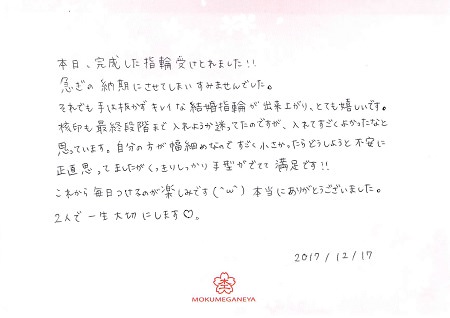 本日、完成した指輪受けとれました!!
急ぎの納期にさせてしまいすみませんでした。
それでも手は抜かずキレイな結婚指輪が出来上がり、とても嬉しいです。
刻印も最終段階まで入れようか迷ってたのですが、入れてすごくよかったなと
思っています。自分の方が幅細めなのですごく小さかったらどうしようと不安に
正直思ってましたがくっきりしっかり手型がでてて満足です!!
これから毎日つけるのが楽しみです(^ω^)本当にありがとうございました。
2人で一生大切にします♡。
2017/12/17
MOKUMEGANEYA